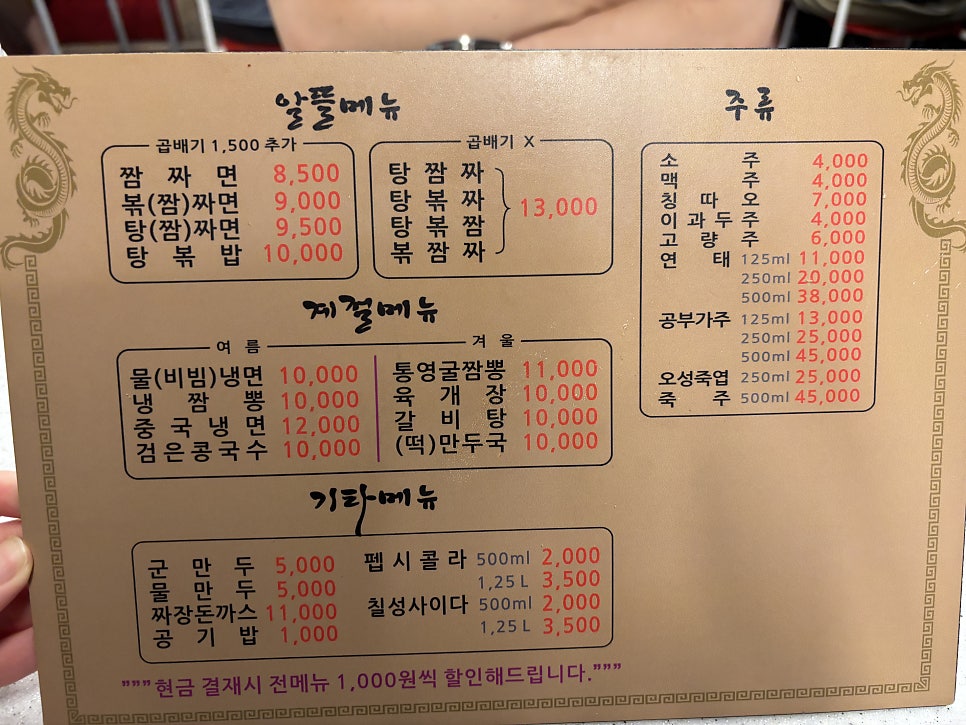 알뜰메뉴
곱배기 1,500 추가
짬 짜 면 8,500
볶(짬)짜면 9,000
탕(짬)짜면 9,500
탕 볶 밥 10,000
곱배기 X
탕 짬 짜
탕 볶 짜
탕 볶 짬
볶 짬 짜
13,000
계절메뉴
여 름
물(비빔)냉면 10,000
냉 짬 뽕 10,000
중 국 냉 면 12,000
검은콩국수 10,000
겨 울
통영굴짬뽕 11,000
육 개 장 10,000
갈 비 탕 10,000
(떡)만두국 10,000
기타메뉴
군 만 두 5,000
물 만 두 5,000
짜장돈까스 11,000
공 기 밥 1,000
펩 시 콜 라 500ml 2,000
1,25 L 3,500
칠성사이다 500ml 2,000
1,25 L 3,500
주류
소 주 4,000
맥 주 4,000
칭 따 오 7,000
이 과 두 주 4,000
고 량 주 6,000
연 태 125ml 11,000
250ml 20,000
500ml 38,000
공부가주 125ml 13,000
250ml 25,000
500ml 45,000
오성죽엽 250ml 25,000
죽 주 500ml 45,000
"""현금 결재시 전메뉴 1,000원씩 할인해드립니다."""